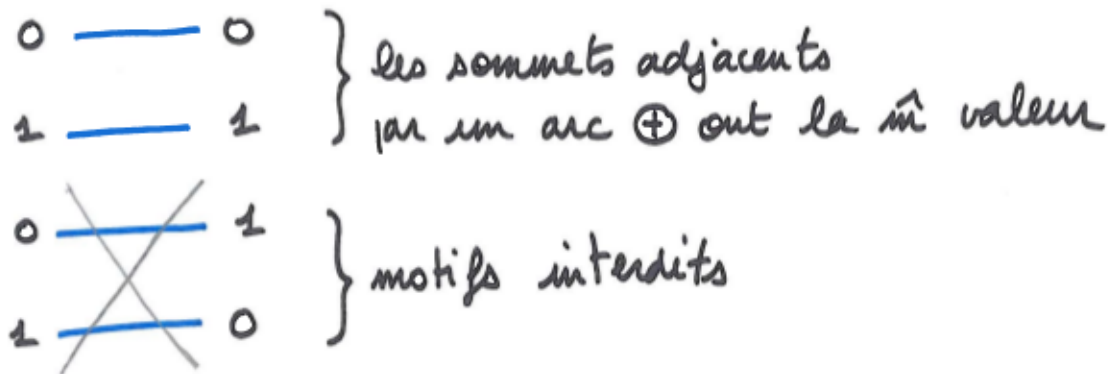 0 — 0
1 — 1
} les sommets adjacents
par un arc ⊕ ont la m̂ valeur
0 — 1
1 — 0
} motifs interdits